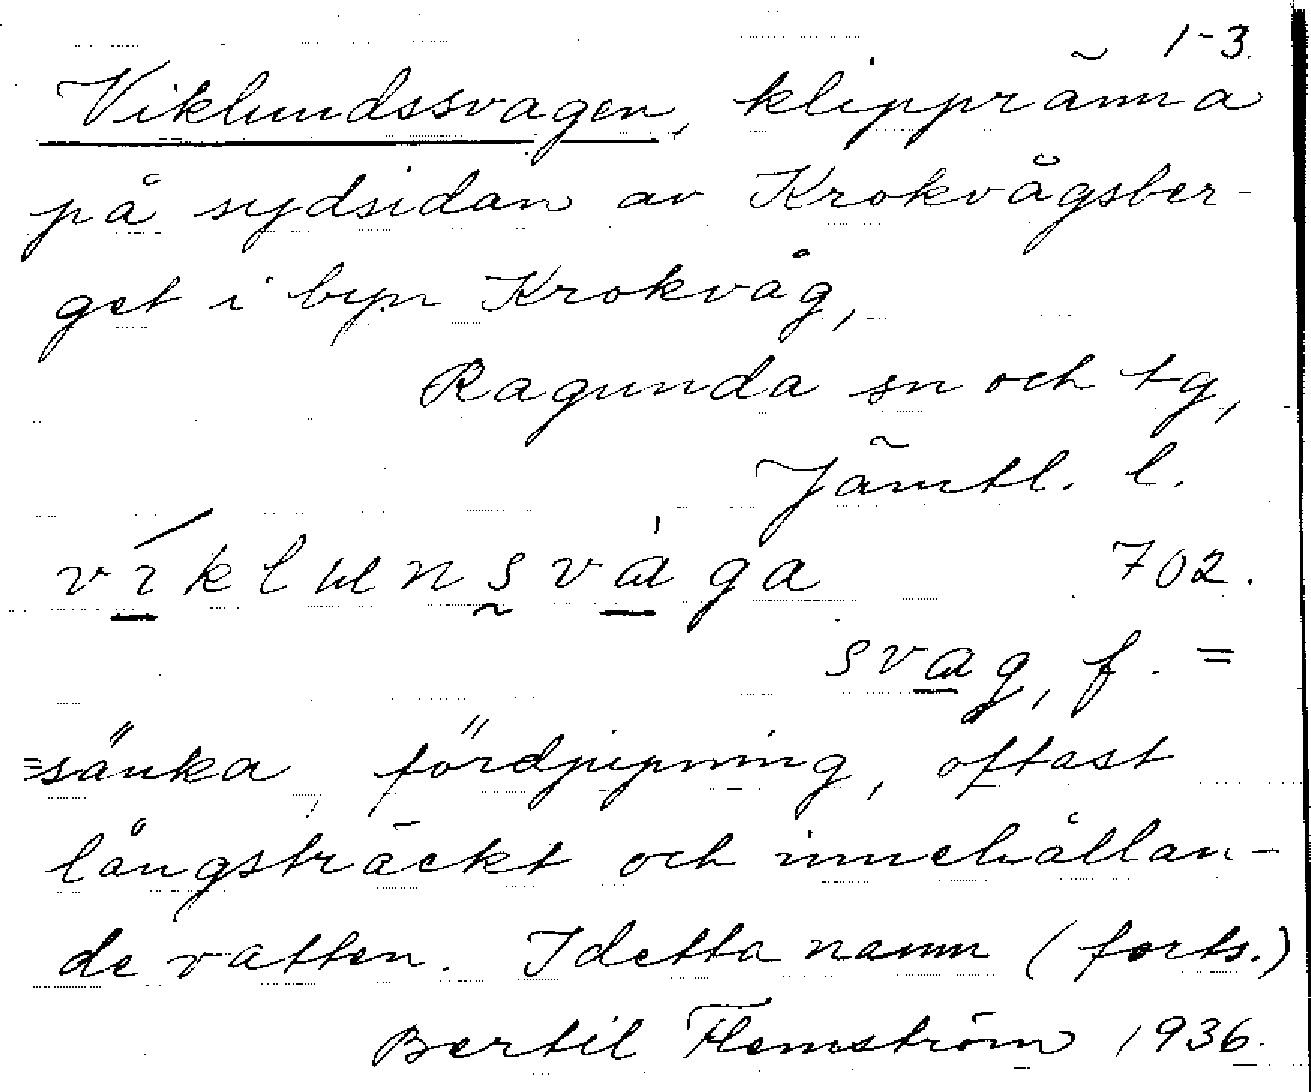 1-3.
Viklundssvagen, klippränna
på sydsidan av Krokvågsber-
get i byn Krokvåg,
Ragunda sn och tg,
Jämtl. l.
víklunsvàga 702.
svag, f. =
=sänka, fördjupning, oftast
långsträckt och innehållan-
de vatten. I detta namn (forts.)
Bertil Flemström 1936.